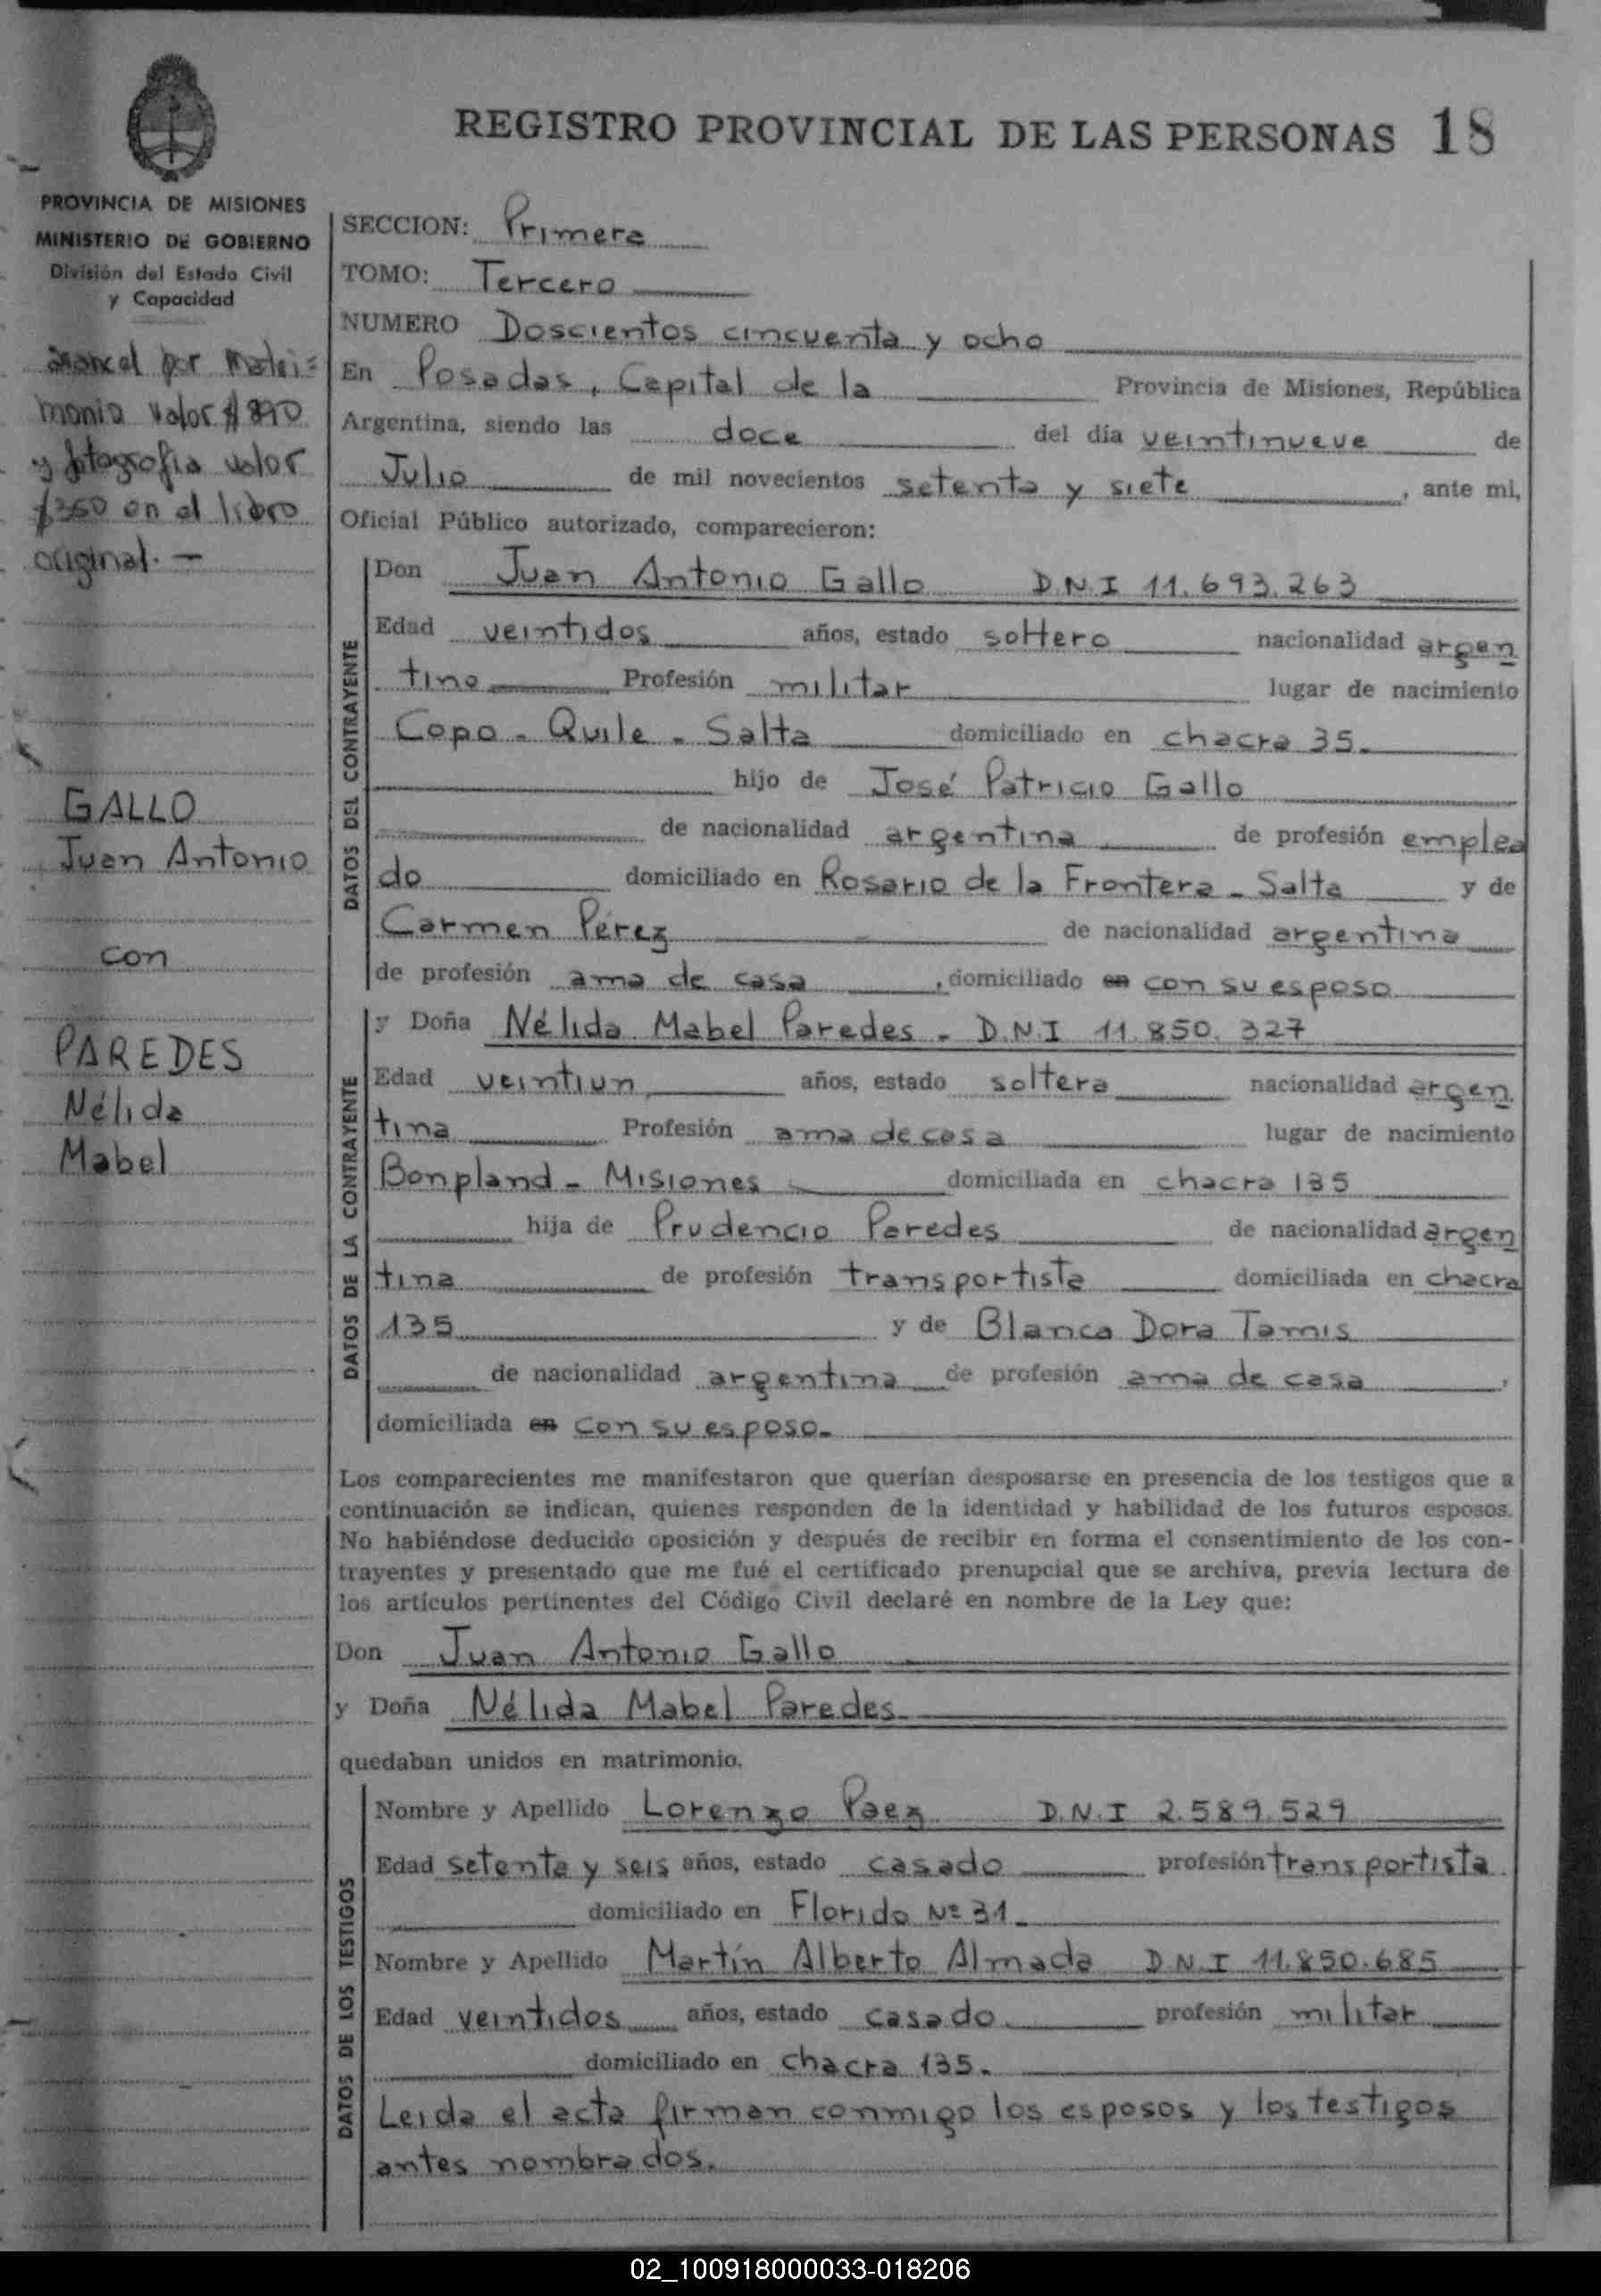 REGISTRO PROVINCIAL DE LAS PERSONAS 18
PROVINCIA DE MISIONES
MINISTERIO DE GOBIERNO
División del Estado Civil
y Capacidad
arancel por Matri=
monio valor $ 890
y fotografia valor
$350 en el libro
original. —
GALLO
Juan Antonio
con
PAREDES
Nélida
Mabel
SECCION: Primera
TOMO: Tercero
NUMERO Doscientos cincuenta y ocho
En Posadas, Capital de la Provincia de Misiones, República
Argentina, siendo las doce del día veintinueve de
Julio de mil novecientos setenta y siete, ante mi,
Oficial Público autorizado, comparecieron:
DATOS DEL CONTRAYENTE
Don Juan Antonio Gallo D.N.I 11.693.263
Edad veintidos años, estado soltero nacionalidad argen
tino Profesión militar lugar de nacimiento
Copo - Quile - Salta domiciliado en chacra 35.
hijo de José Patricio Gallo
de nacionalidad argentina de profesión emplea
do domiciliado en Rosario de la Frontera - Salta y de
Carmen Pérez de nacionalidad argentina
de profesión ama de casa, domiciliado en con su esposo
DATOS DE LA CONTRAYENTE
y Doña Nélida Mabel Paredes - D.N.I 11.850.327
Edad veintiun años, estado soltera nacionalidad argen
tina Profesión ama de casa lugar de nacimiento
Bonpland - Misiones domiciliada en chacra 135
hija de Prudencio Paredes de nacionalidad argen
tina de profesión transportista domiciliada en chacra
135 y de Blanca Dora Tamis
de nacionalidad argentina de profesión ama de casa,
domiciliada en con su esposo.
Los comparecientes me manifestaron que querían desposarse en presencia de los testigos que a
continuación se indican, quienes responden de la identidad y habilidad de los futuros esposos.
No habiéndose deducido oposición y después de recibir en forma el consentimiento de los con-
trayentes y presentado que me fué el certificado prenupcial que se archiva, previa lectura de
los artículos pertinentes del Código Civil declaré en nombre de la Ley que:
Don Juan Antonio Gallo
y Doña Nélida Mabel Paredes
quedaban unidos en matrimonio.
DATOS DE LOS TESTIGOS
Nombre y Apellido Lorenzo Paez D.N.I 2.589.529
Edad setenta y seis años, estado casado profesión transportista
domiciliado en Florido Nº 31.
Nombre y Apellido Martín Alberto Almada D.N.I 11.850.685
Edad veintidos años, estado casado profesión militar
domiciliado en chacra 135.
Leida el acta firman conmigo los esposos y los testigos
antes nombrados.
02_100918000033-018206